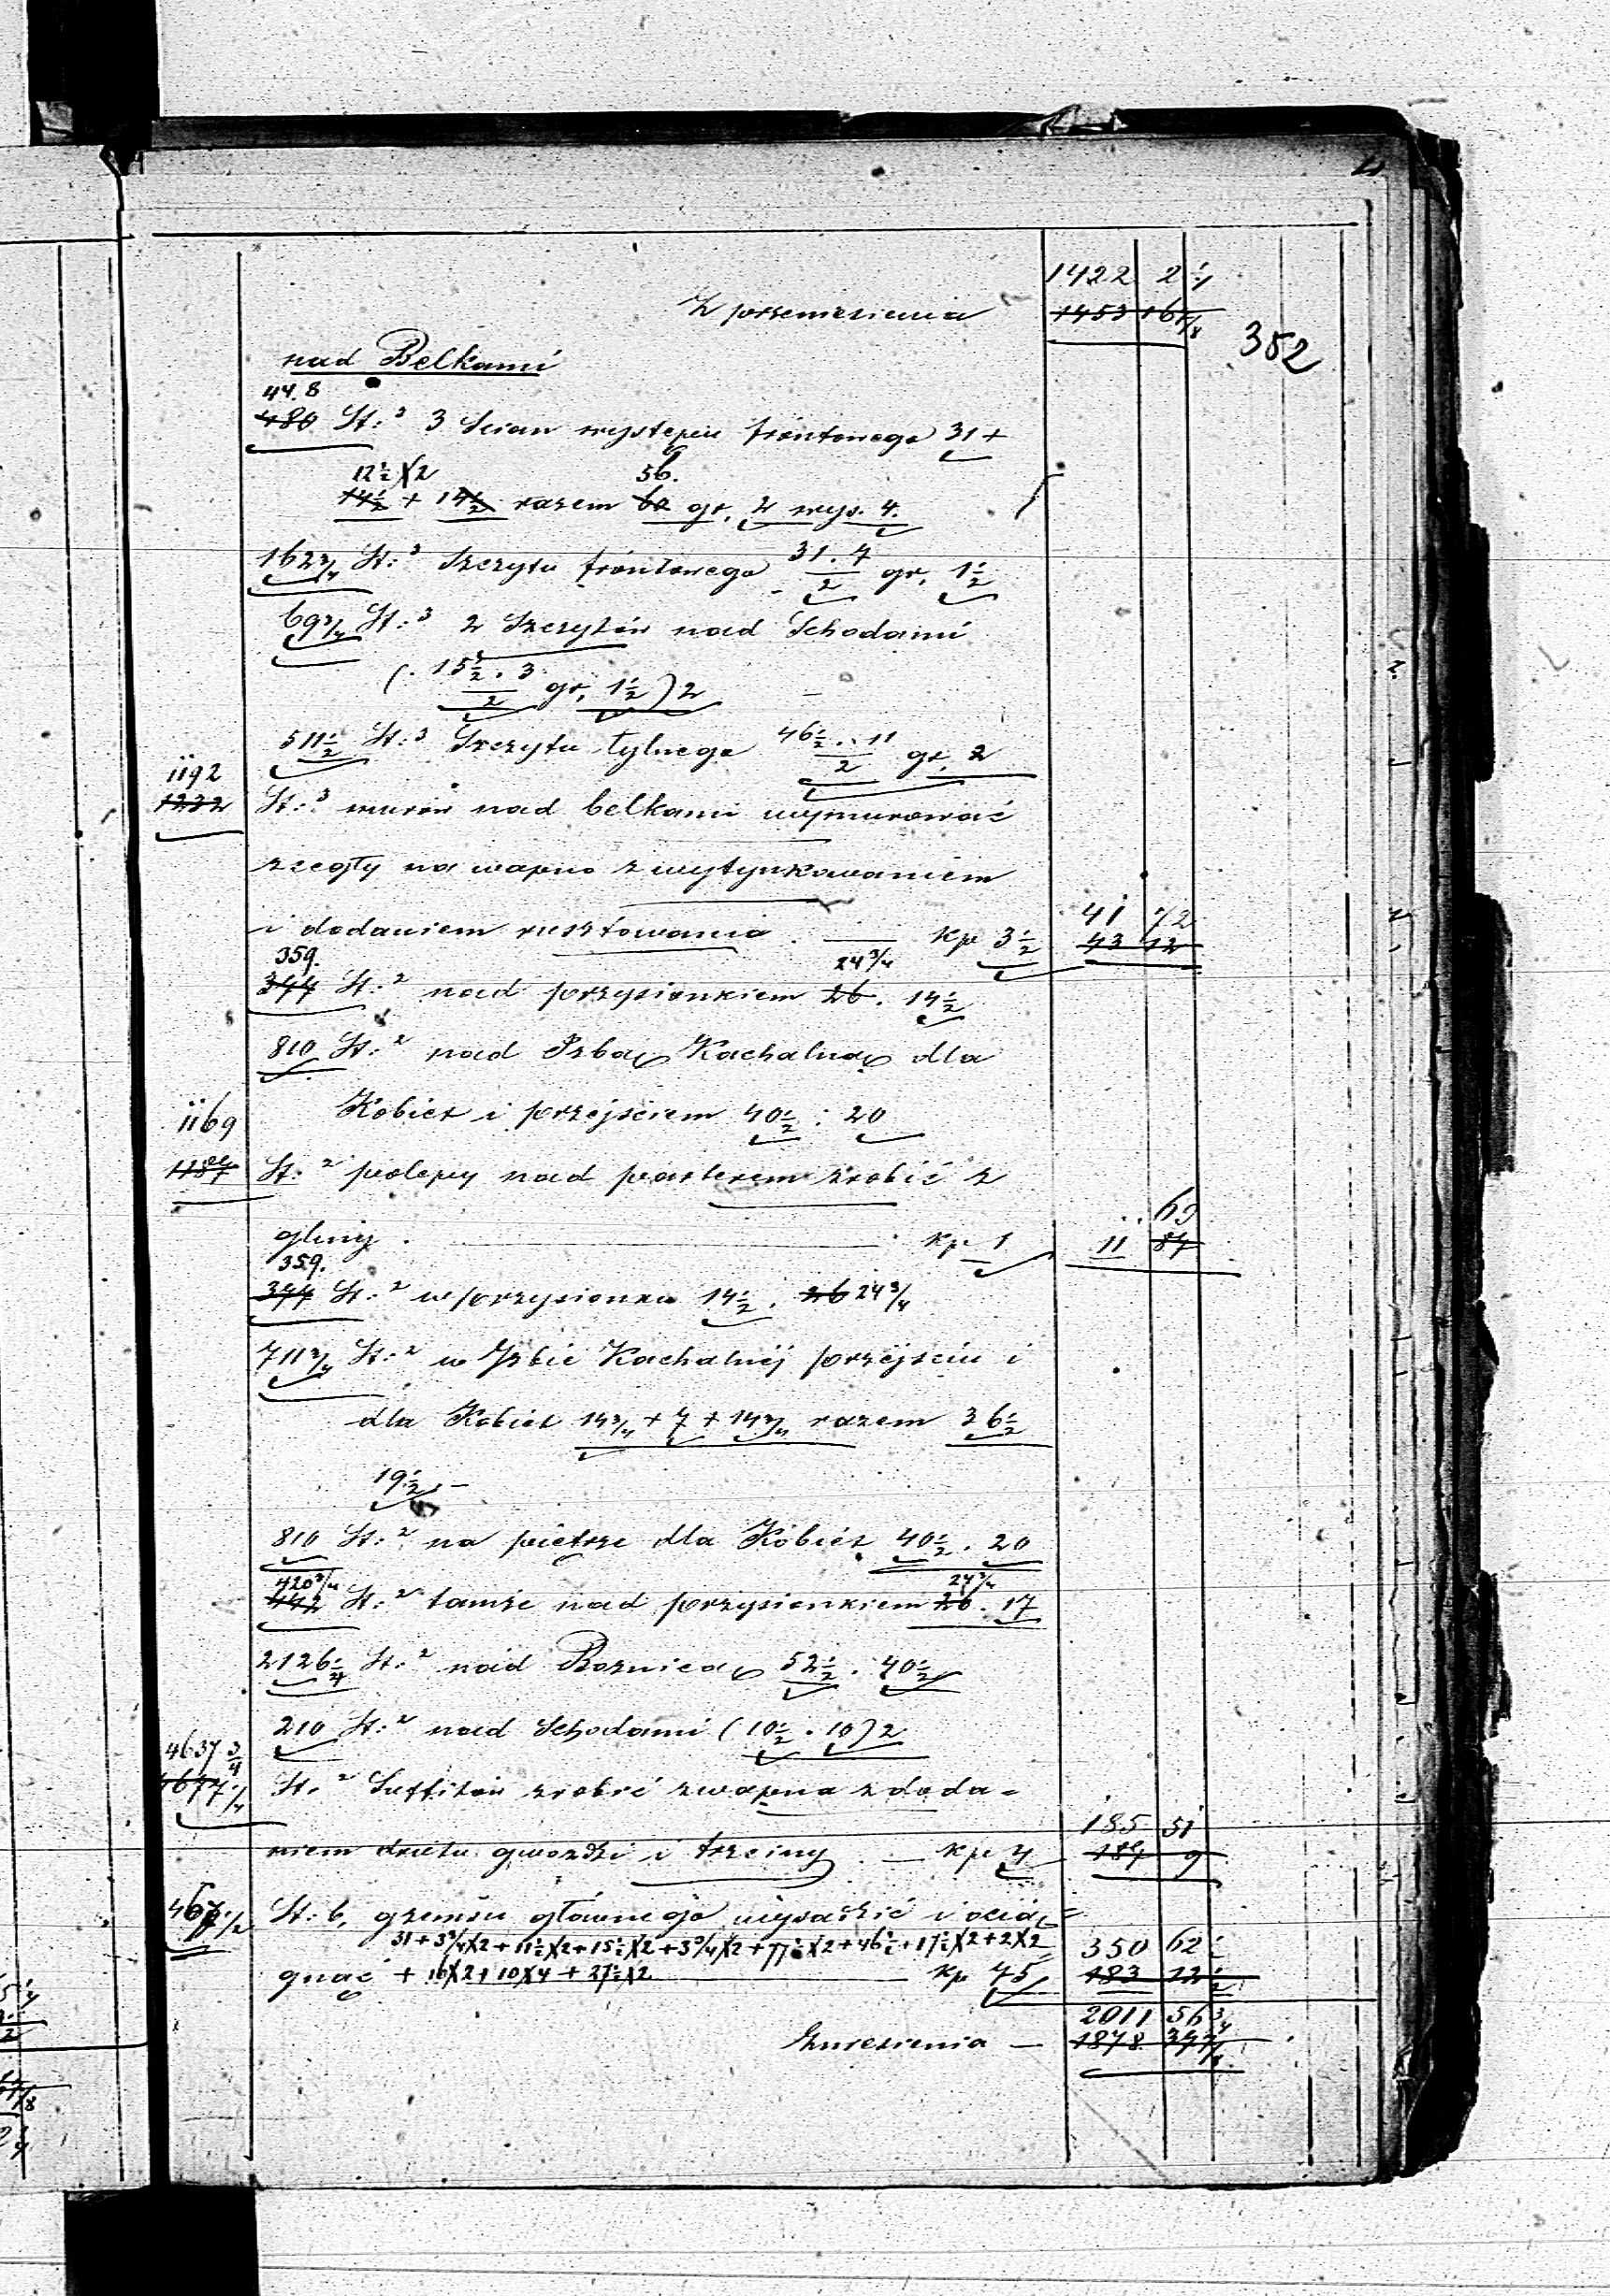 1422 2 1/4
Z przeniesienia 1453 16 1/8
352
nad Belkami
44.8
480 St:³ 3 Scian wystepu frontowego 31 +
12 1/2 X 2 56.
14 1/2 + 14 1/2 razem 60 gr. 2 wys. 4.
162 3/4 St:³ Szczytu frontowego 31.7/2 gr. 1 1/2
69 3/4 St:³ 2 Szczytów nad Schodami
(.15 1/2 . 3/2 gr. 1 1/2) 2
511 1/2 St:³ Szczytu tylnego 46 1/2 . 11/2 gr. 2
1192
1232 St:³ murów nad belkami wymurować
z cegły na wapno z wytynkowaniem
41 72
i dodaniem rusztowania . — kp 3 1/2 43 12
359. 24 3/4
377 St:² nad przysionkiem 26. 14 1/2
810 St:² nad Izbą Kąchalną dla
Kobiet i przejściem 40 1/2 : 20
1169
1187 St:² polepy nad parterem zrobić z
69
gliny . — kp 1 11 87
359.
377 St:² w przysionku 14 1/2 . 26 24 3/4
711 3/4 St:² w Izbie Kachalnéj przejściu i
dla Kobiet 14 3/4 + 7 + 14 3/4 razem 36 1/2
19 1/2 . —
810 St:² na piętrze dla Kobiet 40 1/2 . 20
420 3/4 24 3/4
442 St:² tamże nad przysionkiem 26. 17
2126 1/4 St:² nad Boznicą 52 1/2 . 40 1/2
210 St:² nad Schodami (10 1/2 . 10) 2
4637 3/4
4677 1/4 St.² Suffitów zrobić z wapna z doda=
185 51
niem drutu gwozdzi i trzciny . — kp 4 187 9
467 1/2 St: b, gzemsu głównego wysadzić i ocią=
31 + 3 3/4 X 2 + 11 1/2 X 2 + 15 1/2 X 2 + 3 3/4 X 2 + 77 1/2 X 2 + 46 1/2 + 17 1/2 X 2 + 2 X 2 350 62 1/2
gnąć + 16 X 2 + 10 X 4 + 27 1/2 X 2 — kp 75 183 12 1/2
2011 56 3/4
Zniesienia — 1878 37 7/8